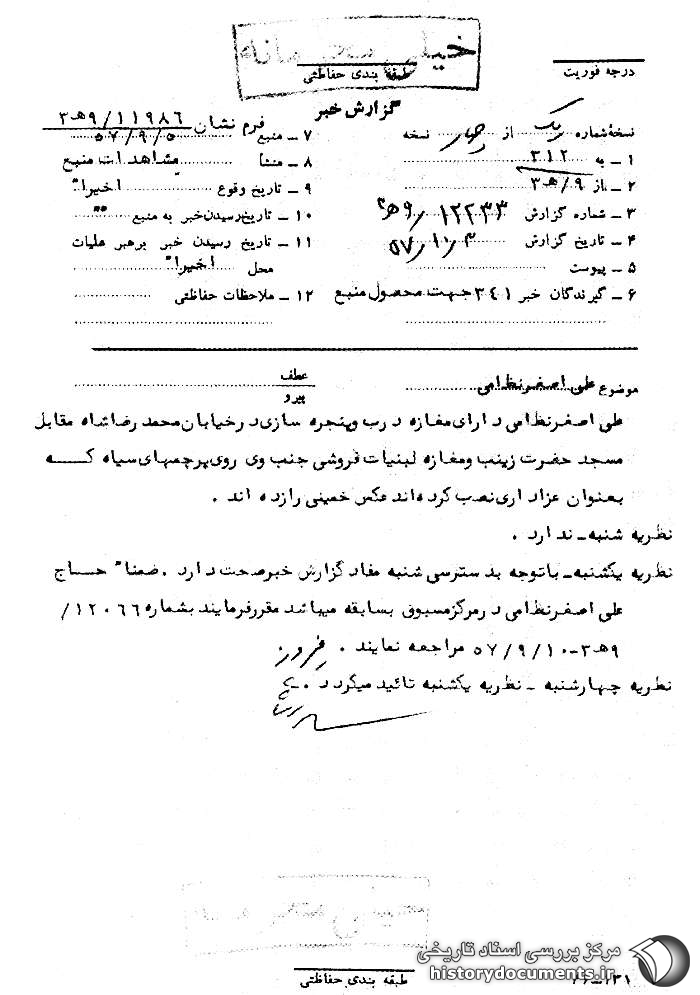 خیلی محرمانه
درجه فوریت
طبقه بندی حفاظتی
گزارش خبر
نسخهٔ شماره یک از چهار نسخه
۱ ــ به ۳۱۲
۲ ــ از ۹/هـ۳
۳ ــ شماره گزارش ۱۲۲۳۳/۹هـ۳
۴ ــ تاریخ گزارش ۵۷/۱۰/۳
۵ ــ پیوست
۶ ــ گیرندگان خبر ۳۴۱ جهت محصول منبع
۷ ــ منبع فرم نشان ۱۱۹۸۶/۹هـ۳
۵۷/۹/۵
۸ ــ منشا مشاهدات منبع
۹ ــ تاریخ وقوع اخیرا"
۱۰ ــ تاریخ رسیدن خبر به منبع " "
۱۱ ــ تاریخ رسیدن خبر برهبر عملیات
محل اخیرا"
۱۲ ــ ملاحظات حفاظتی
موضوع علی اصغر نظامی
عطف
پیرو
علی اصغر نظامی دارای مغازه درب وپنجره سازی در خیابان محمد رضا شاه مقابل
مسجد حضرت زینب ومغازه لبنیات فروشی جنب وی روی پرچمهای سیاه کــــه
بعنوان عزاداری نصب کرده اند عکس خمینی را زده اند .
نظریه شنبه ــ ندارد .
نظریه یکشنبه ــ باتوجه بدسترسی شنبه مفاد گزارش خبر صحت دارد . ضمنا" حــاج
علی اصغر نظامی در مرکز مسبوق بسابقه میباشد مقرر فرمایند بشماره ۱۲۰۶۶/
۹هـ۳-۵۷/۹/۱۰ مراجعه نمایند .
نظریه چهارشنبه ــ نظریه یکشنبه تائید میگردد .
طبقه بندی حفاظتی
مرکز بررسی اسناد تاریخی
historydocuments.ir